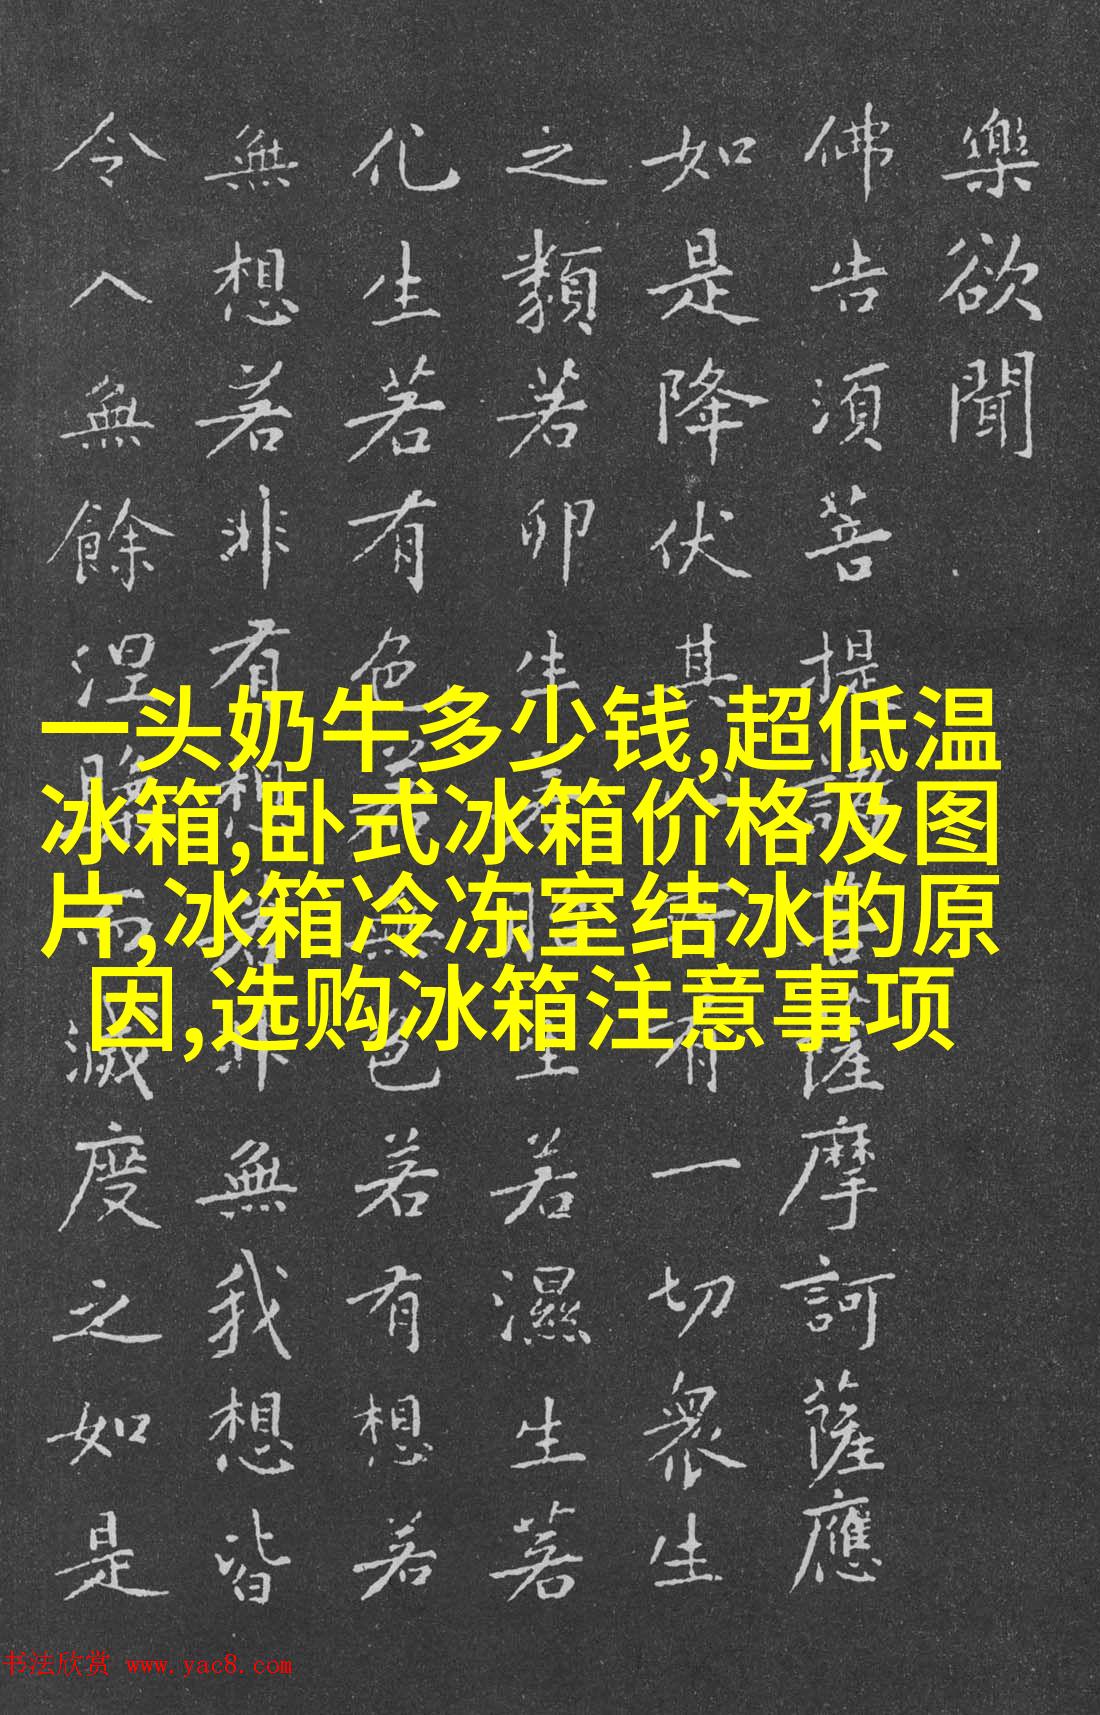 樂欲聞
佛告須菩提諸菩薩摩訶薩應
如是降伏其心所有一切衆生
之類若卵生若胎生若濕生若
化生若有色若無色若有想若
無想若非有想若非無我想皆
令入無餘涅槃而滅度之如是
一头奶牛多少钱,超低温
冰箱,卧式冰箱价格及图
片,冰箱冷冻室结冰的原
因,选购冰箱注意事项
书法欣赏 www.yac8.com